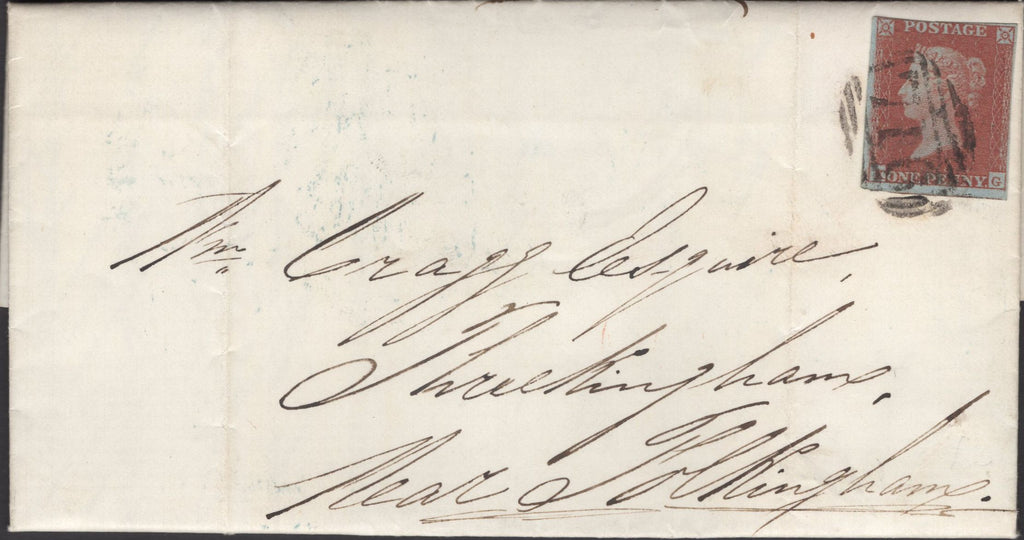 POSTAGE
ONE PENNY
G
Wm Cragg Esquire,
Threekingham,
Near Folkingham.